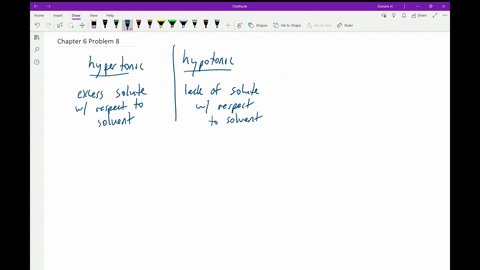 OneNote
File Home Insert Draw View Help
Shapes Ink to Shape Ink to Text Ruler
Chapter 6 Problem 8
hypertonic
excess solute
w/ respect to
solvent
hypotonic
lack of solute
w/ respect
to solvent